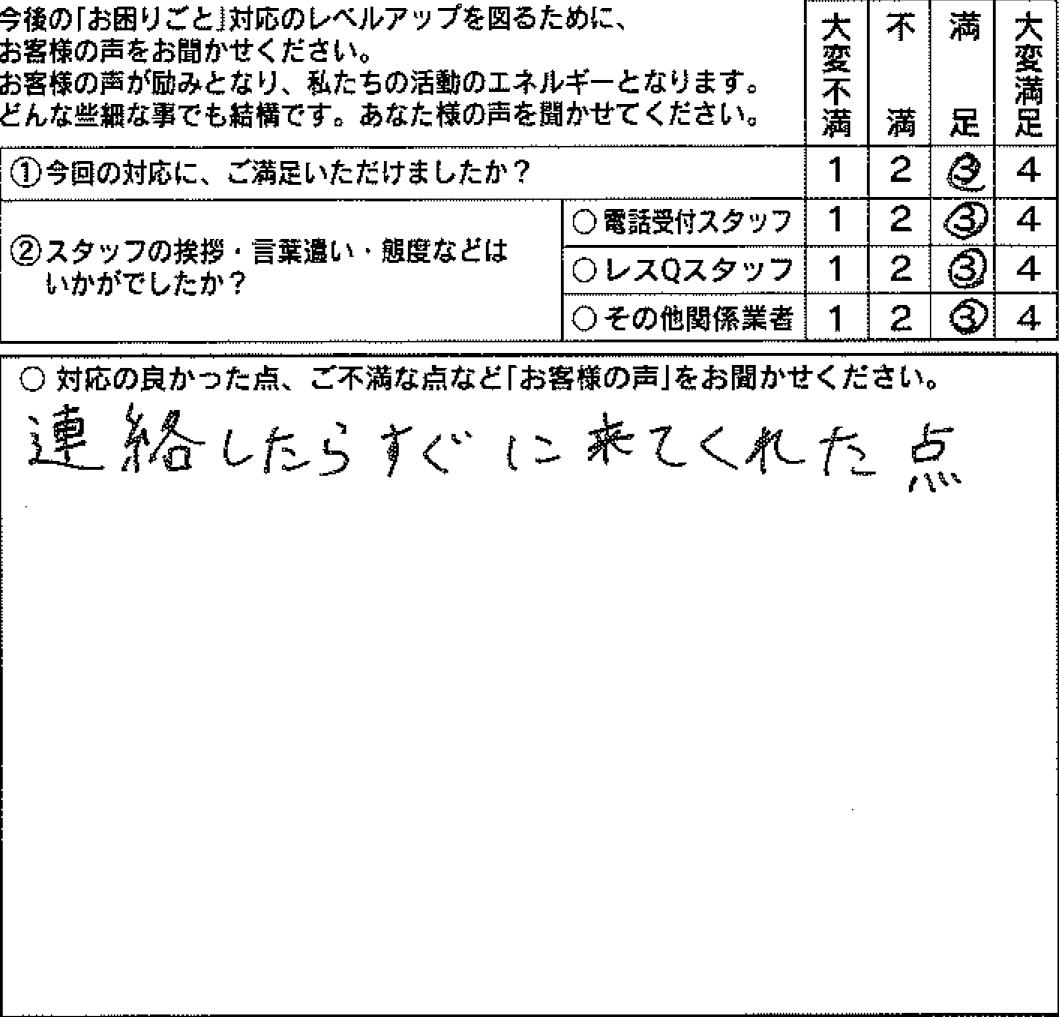 今後の「お困りごと」対応のレベルアップを図るために、
お客様の声をお聞かせください。
お客様の声が励みとなり、私たちの活動のエネルギーとなります。
どんな些細な事でも結構です。あなた様の声を聞かせてください。
大変不満 不満 満足 大変満足
①今回の対応に、ご満足いただけましたか？ 1 2 3 4
②スタッフの挨拶・言葉遣い・態度などは
いかがでしたか？
○電話受付スタッフ 1 2 3 4
○レスQスタッフ 1 2 3 4
○その他関係業者 1 2 3 4
○ 対応の良かった点、ご不満な点など「お客様の声」をお聞かせください。
連絡したらすぐに来てくれた点